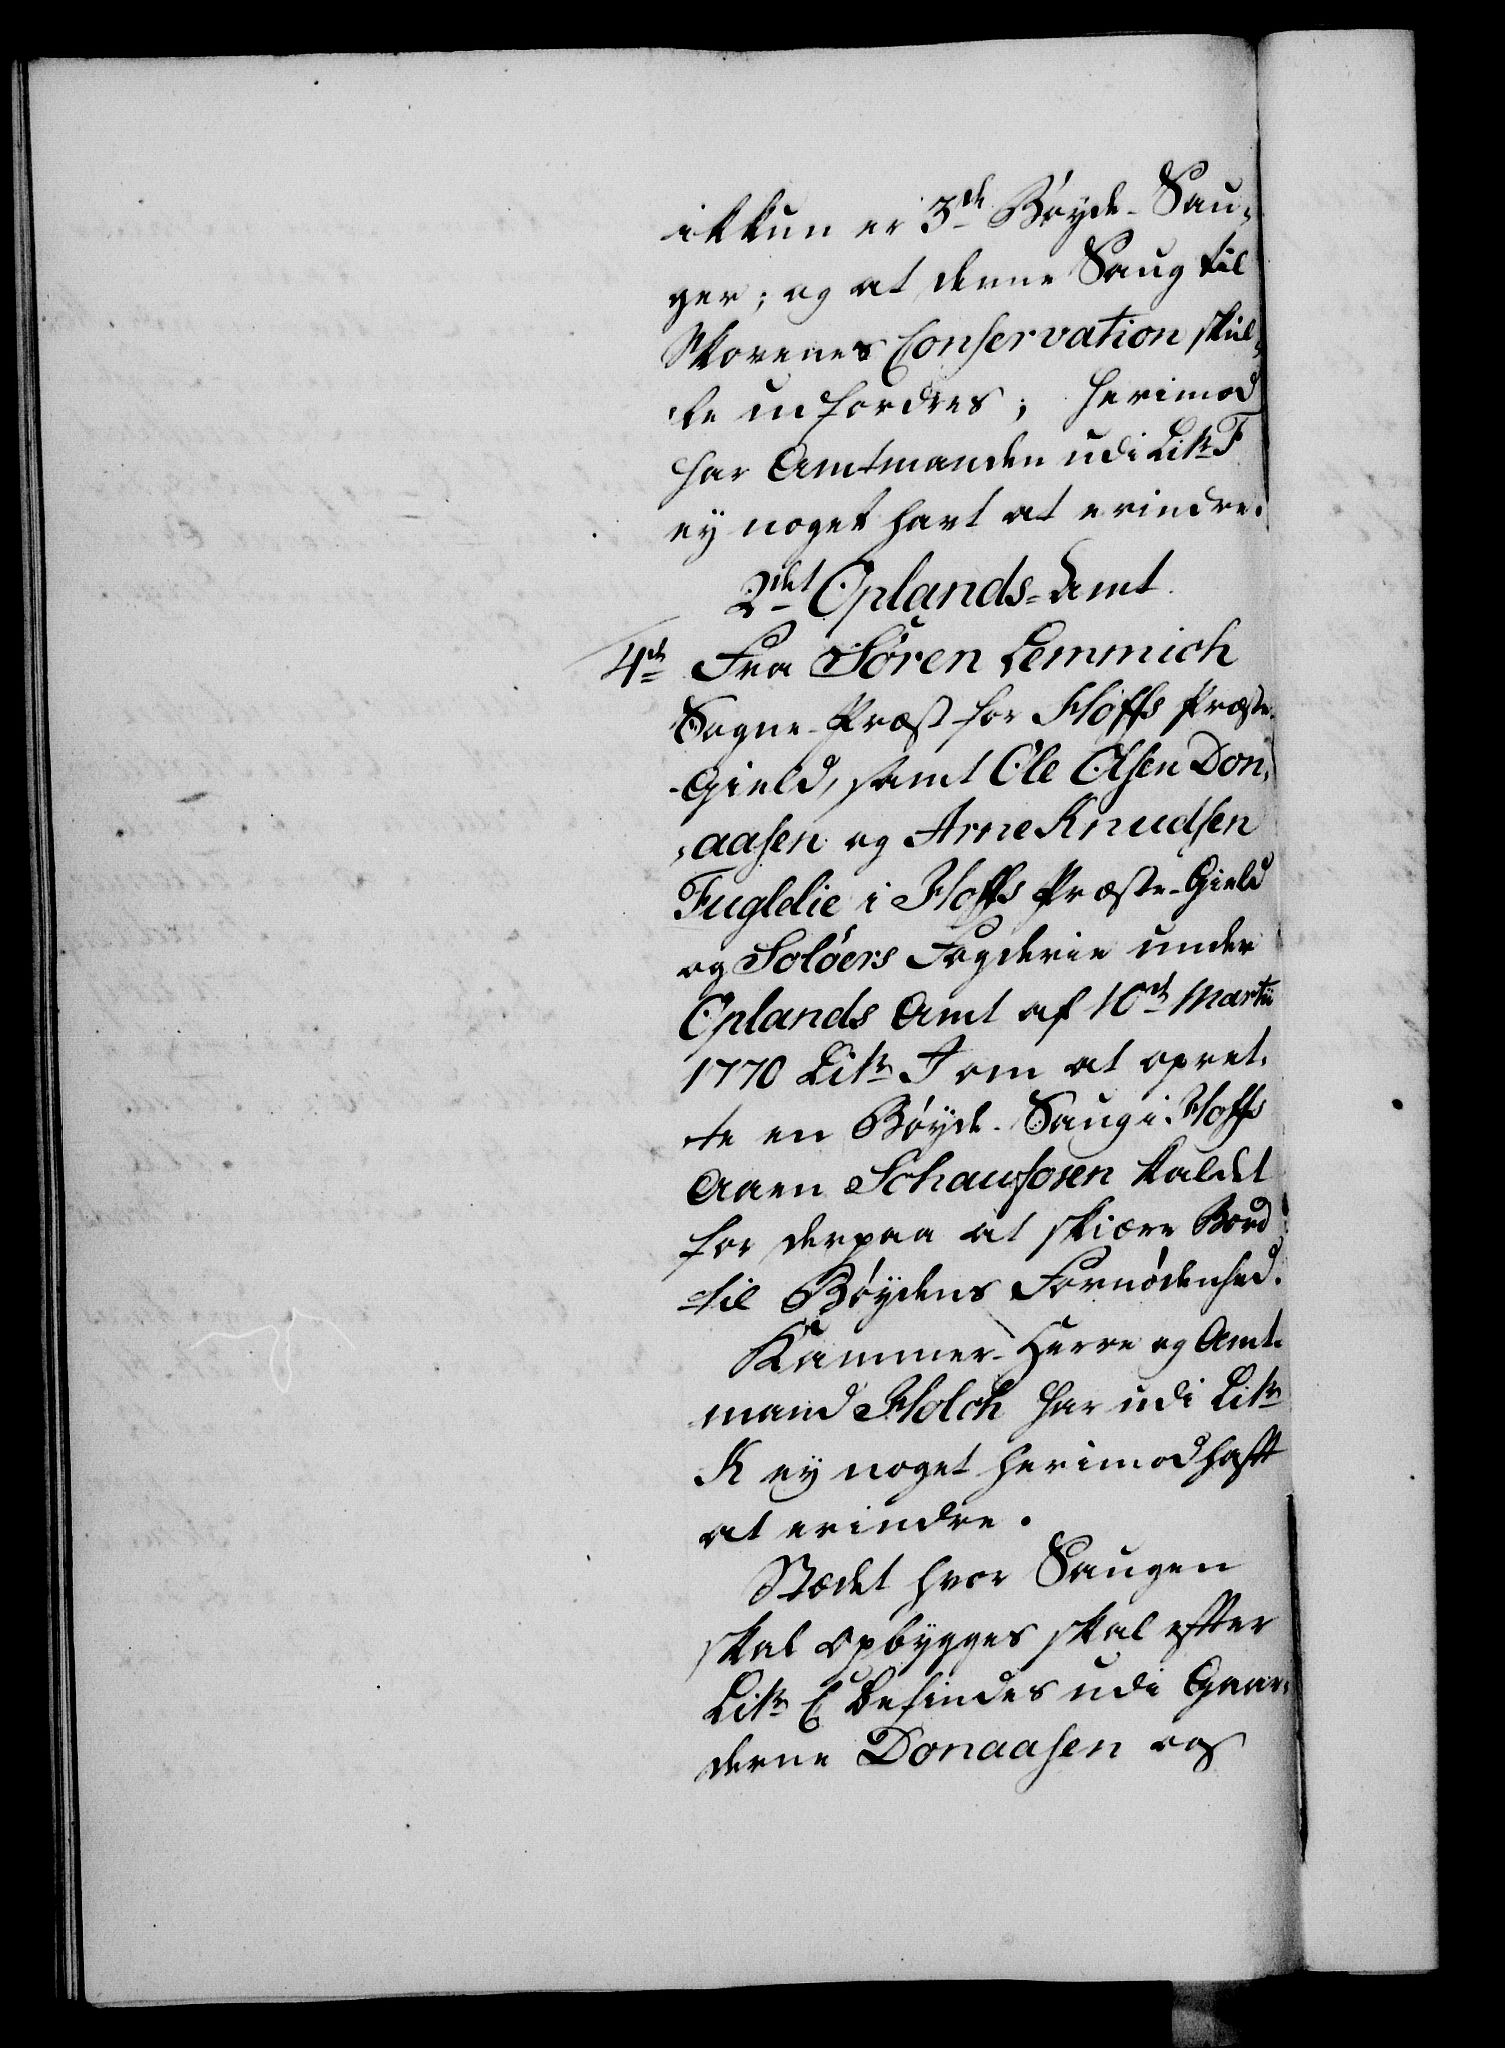 ikkun er 3de Bøyde-Sau-
ger; og at denne Saug til
Skovenes Conservation skul-
le udfordres; herimod
har Amtmanden udi Litr F
ey noget havt at erindre.
2det Oplands-Amt.
4de Fra Søren Lemmich
Sogne-Præst for Hoffs Præste-
Gield, samt Ole Olsen Don-
aasen og Arne Knudsen
Fuglelie i Hoffs Præste-Gield
og Soløers Fogderie under
Oplands Amt af 10de Martii
1770 Litr I om at opret-
te en Bøyde-Saug i Hoffs
Aaen Schausfosen kaldet
for derpaa at skiære Bord
til Bøydens Fornødenhed.
Kammer-Herre og Amt-
mand Holch har udi Litr
K ey noget herimod hafft
at erindre.
Stædet hvor Saugen
skal opbygges skal efter
Litr E befindes udi Gaar-
derne Donaasen og